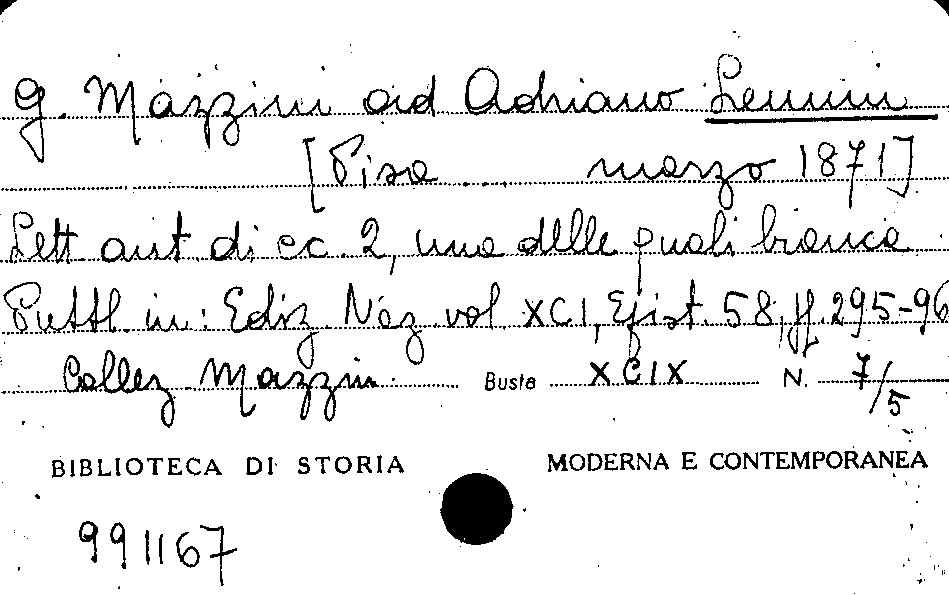 G. Mazzini ad Adriano Lemmi
[Pisa ... marzo 1871]
Lett aut di cc. 2, una delle quali bianca
Pubbl. in: Ediz. Naz. vol XCI, Epist. 58, pp. 295-96
Collez Mazzini Busta XCIX N. 7/5
BIBLIOTECA DI STORIA MODERNA E CONTEMPORANEA
991167